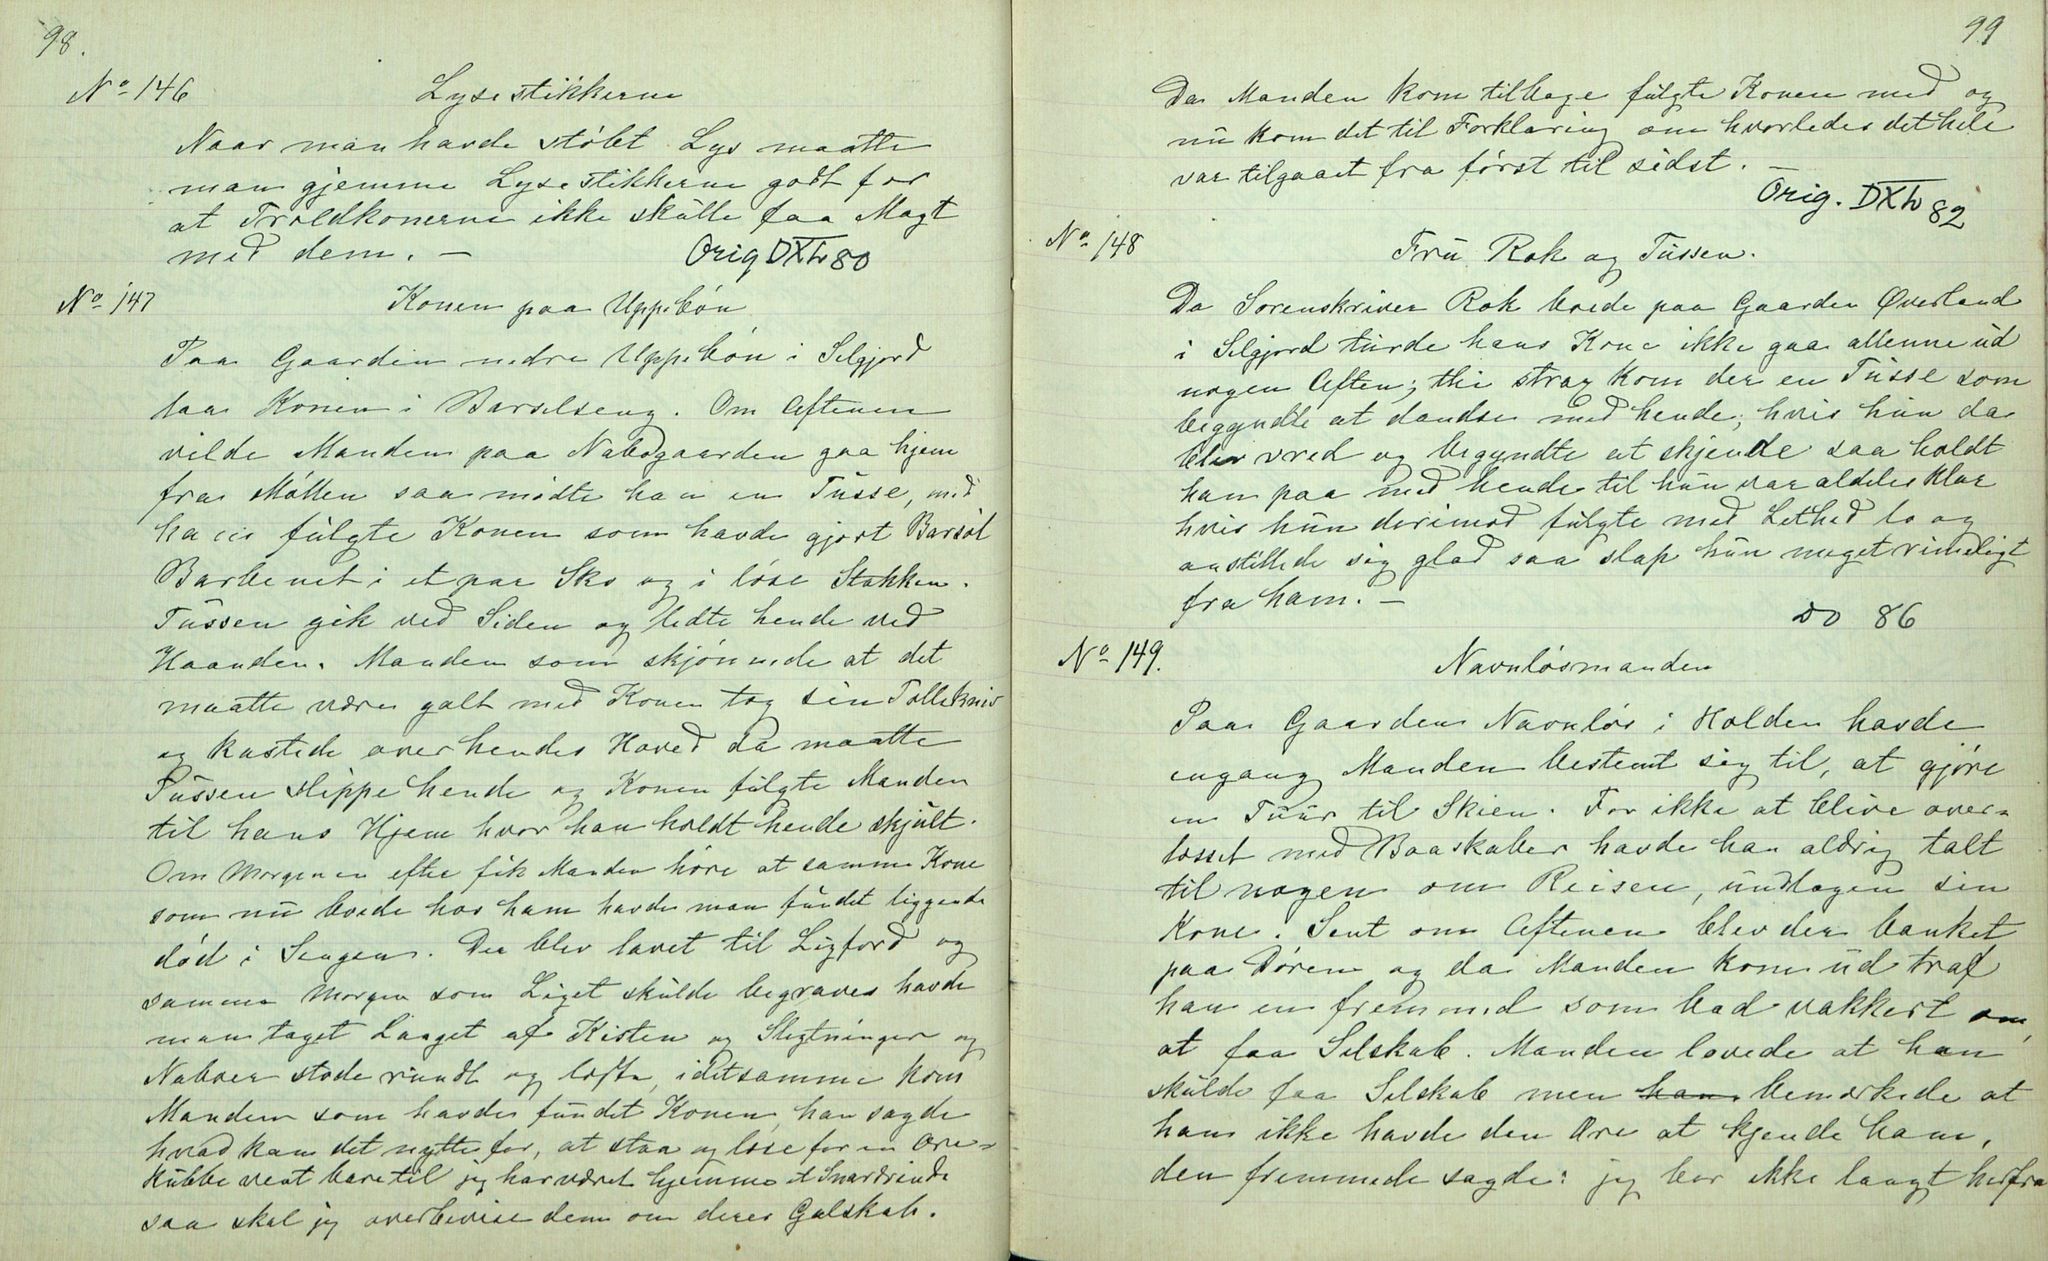 98.
No 146 Lysestikkerne
Naar man havde støbt Lys maatte
man gjemme Lysestikkerne godt for
at Troldkonerne ikke skulle faa Magt
med dem. —
Orig DXL 80
No 147 Konen paa Uppebøn
Paa Gaarden nedre Uppebøn i Selgjord
laa Konen i Barselseng. Om Aftenen
vilde Manden paa Nabogaarden gaa hjem
fra Møllen saa mødte han en Tusse, med
ham fulgte Konen som havde gjort Barsøl
Barbenet i et par Sko og i løse Stakken.
Tussen gik ved Siden og ledte hende ved
Haanden. Manden som skjønnede at det
maatte være galt med Konen tog sin Tollekniv
og kastede over hendes Hoved da maatte
Tussen slippe hende og Konen fulgte Manden
til hans Hjem hvor han holdt hende skjult.
Om Morgenen efter fik Manden høre at samme Kone
som nu boede hos ham havde man fundet liggende
død i Sengen. Der blev lavet til Ligfærd og
samme Morgen som Liget skulde begraves havde
man taget Laaget af Kisten og Slegtninger og
Naboer stode rundt og løfte, idetsamme kom
Manden som havde fundet Konen, han sagde
hvad kan det nytte for, at staa og læse for en Ore-
kubbe vent bare til jeg har været hjemme et Snarærinde
saa skal jeg overbevise dem om deres Galskab.
99
Da Manden kom tilbage fulgte Konen med og
nu kom det til Forklaring om hvorledes det hele
var tilgaaet fra først til sidst. —
Orig. DXL 82
No 148
Fru Rok og Tussen.
Da Sorenskriver Rok boede paa Gaarden Øverland
i Selgjord turde hans Kone ikke gaa allenne ud
nogen Aften; thi strax kom der en Tusse som
begyndte at dandse med hende; hvis hun da
blev vred og begyndte at skjende saa holdt
han paa med hende til hun var aldeles klar
hvis hun derimod fulgte med Lethed lo og
anstillede sig glad saa slap hun meget rimeligt
fra ham. —
do 86
No 149.
Navnløsmanden
Paa Gaarden Navnløs i Holden havde
engang Manden bestemt sig til, at gjøre
en Tuur til Skien. For ikke at blive over-
læsset med Baaskaber havde han aldrig talt
til nogen om Reisen, undtagen sin
Kone. Sent om Aftenen blev der banket
paa Døren og da Manden kom ud traf
han en fremmed som bad vakkert om
at faa Selskab. Manden lovede at han
skulde faa Selskab men han bemærkede at
han ikke havde den Ære at kjende ham,
den fremmede sagde: jeg bor ikke langt herfra